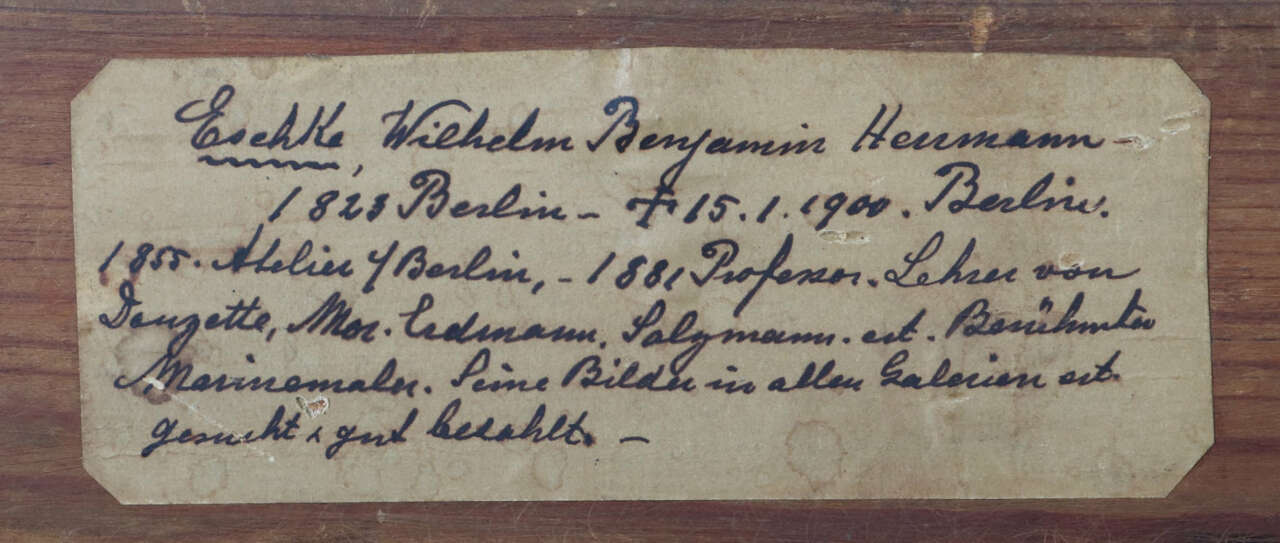 Eschke, Wilhelm Benjamin Hermann -
1823 Berlin - † 15.1.1900. Berlin.
1855. Atelier / Berlin, - 1881 Professor. Lehrer von
Douzette, Mor. Erdmann, Salzmann. ect. Berühmter
Marinemaler. Seine Bilder in allen Galerien ect.
gesucht & gut bezahlt. -